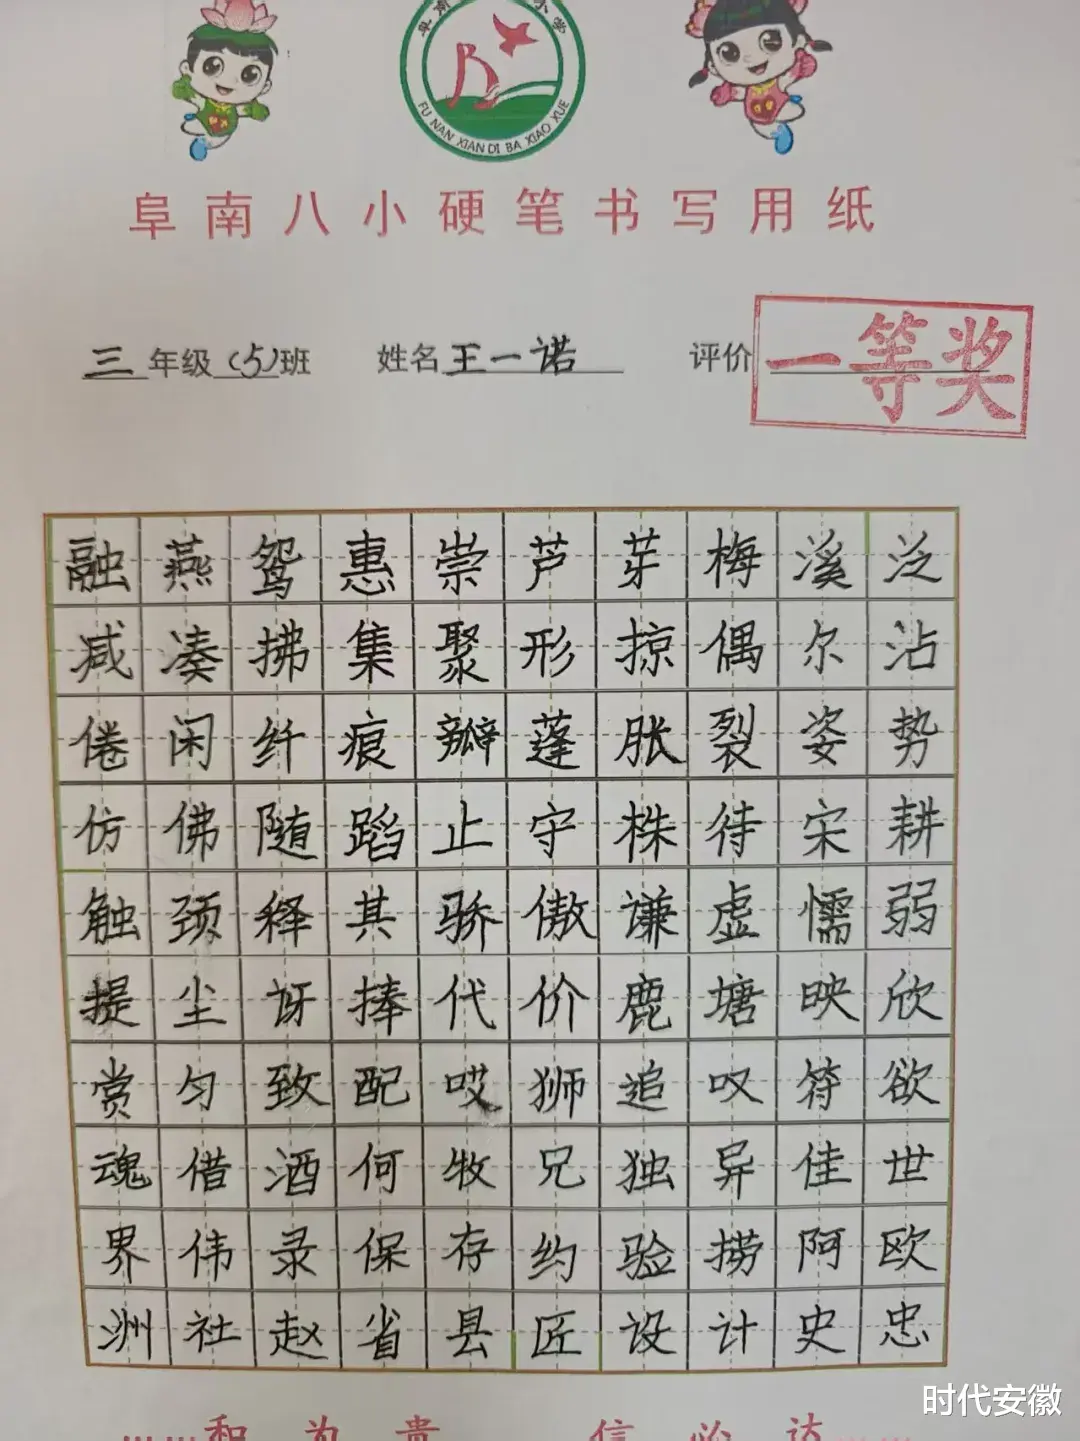 FU NAN XIAN DI BA XIAO XUE
阜南八小硬笔书写用纸
三年级(5)班 姓名王一诺 评价 一等奖
融燕鸳惠崇芦芽梅溪泛
减凑拂集聚形掠偶尔沾
倦闲纤痕瓣蓬胀裂姿势
仿佛随蹈止守株待宋耕
触颈释其骄傲谦虚懦弱
提尘讶捧代价鹿塘映欣
赏匀致配哎狮追叹符欲
魂借酒何牧兄独异佳世
界伟录保存约验捞阿欧
洲社赵省县匠设计史忠
和为贵 信必达
时代安徽